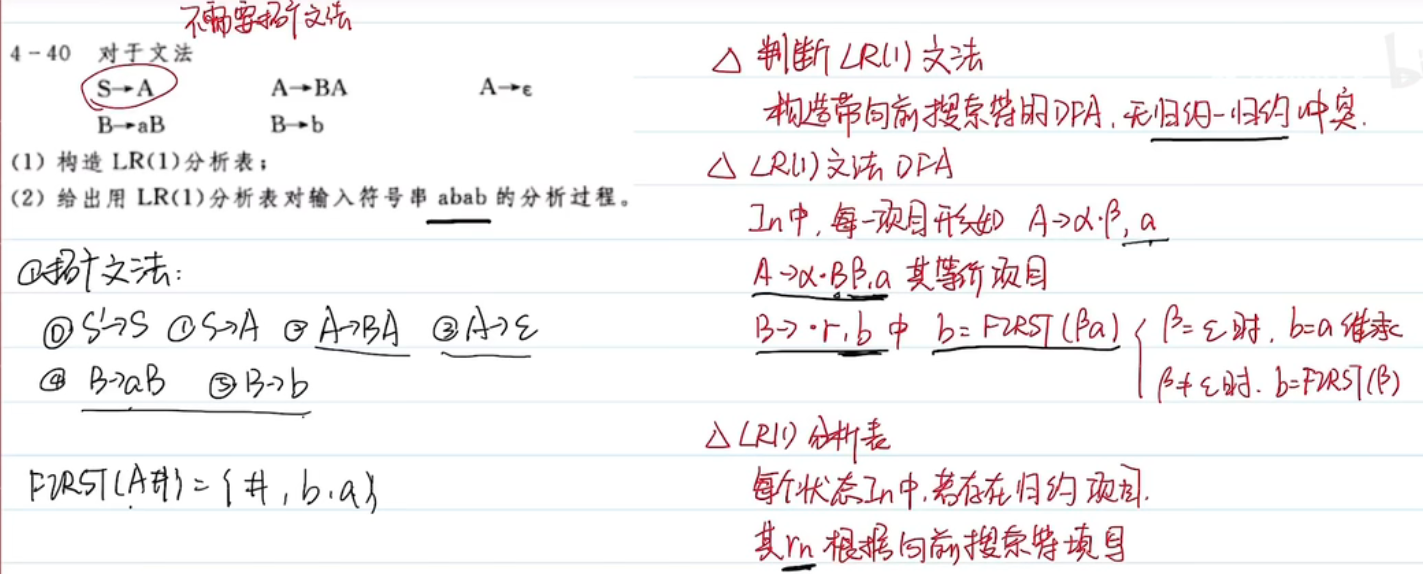 不需要拓广文法
4-40 对于文法
S→A A→BA A→ε
B→aB B→b
(1) 构造 LR(1)分析表；
(2) 给出用 LR(1)分析表对输入符号串 abab 的分析过程。
①拓广文法:
⓪ S'→S ① S→A ② A→BA ③ A→ε
④ B→aB ⑤ B→b
FIRST(A#)={#,b,a}
△ 判断LR(1)文法
构造带向前搜索符的DFA,无归约-归约冲突.
△ LR(1)文法DFA
In中,每一项目形如 A→α·β,a
A→α·Bβ,a 其等价项目
B→·r,b 中 b=FIRST(βa) { β=ε时, b=a 继承
β≠ε时. b=FIRST(β)
△ LR(1)分析表
每个状态In中,若存在归约项目.
其rn根据向前搜索符填写